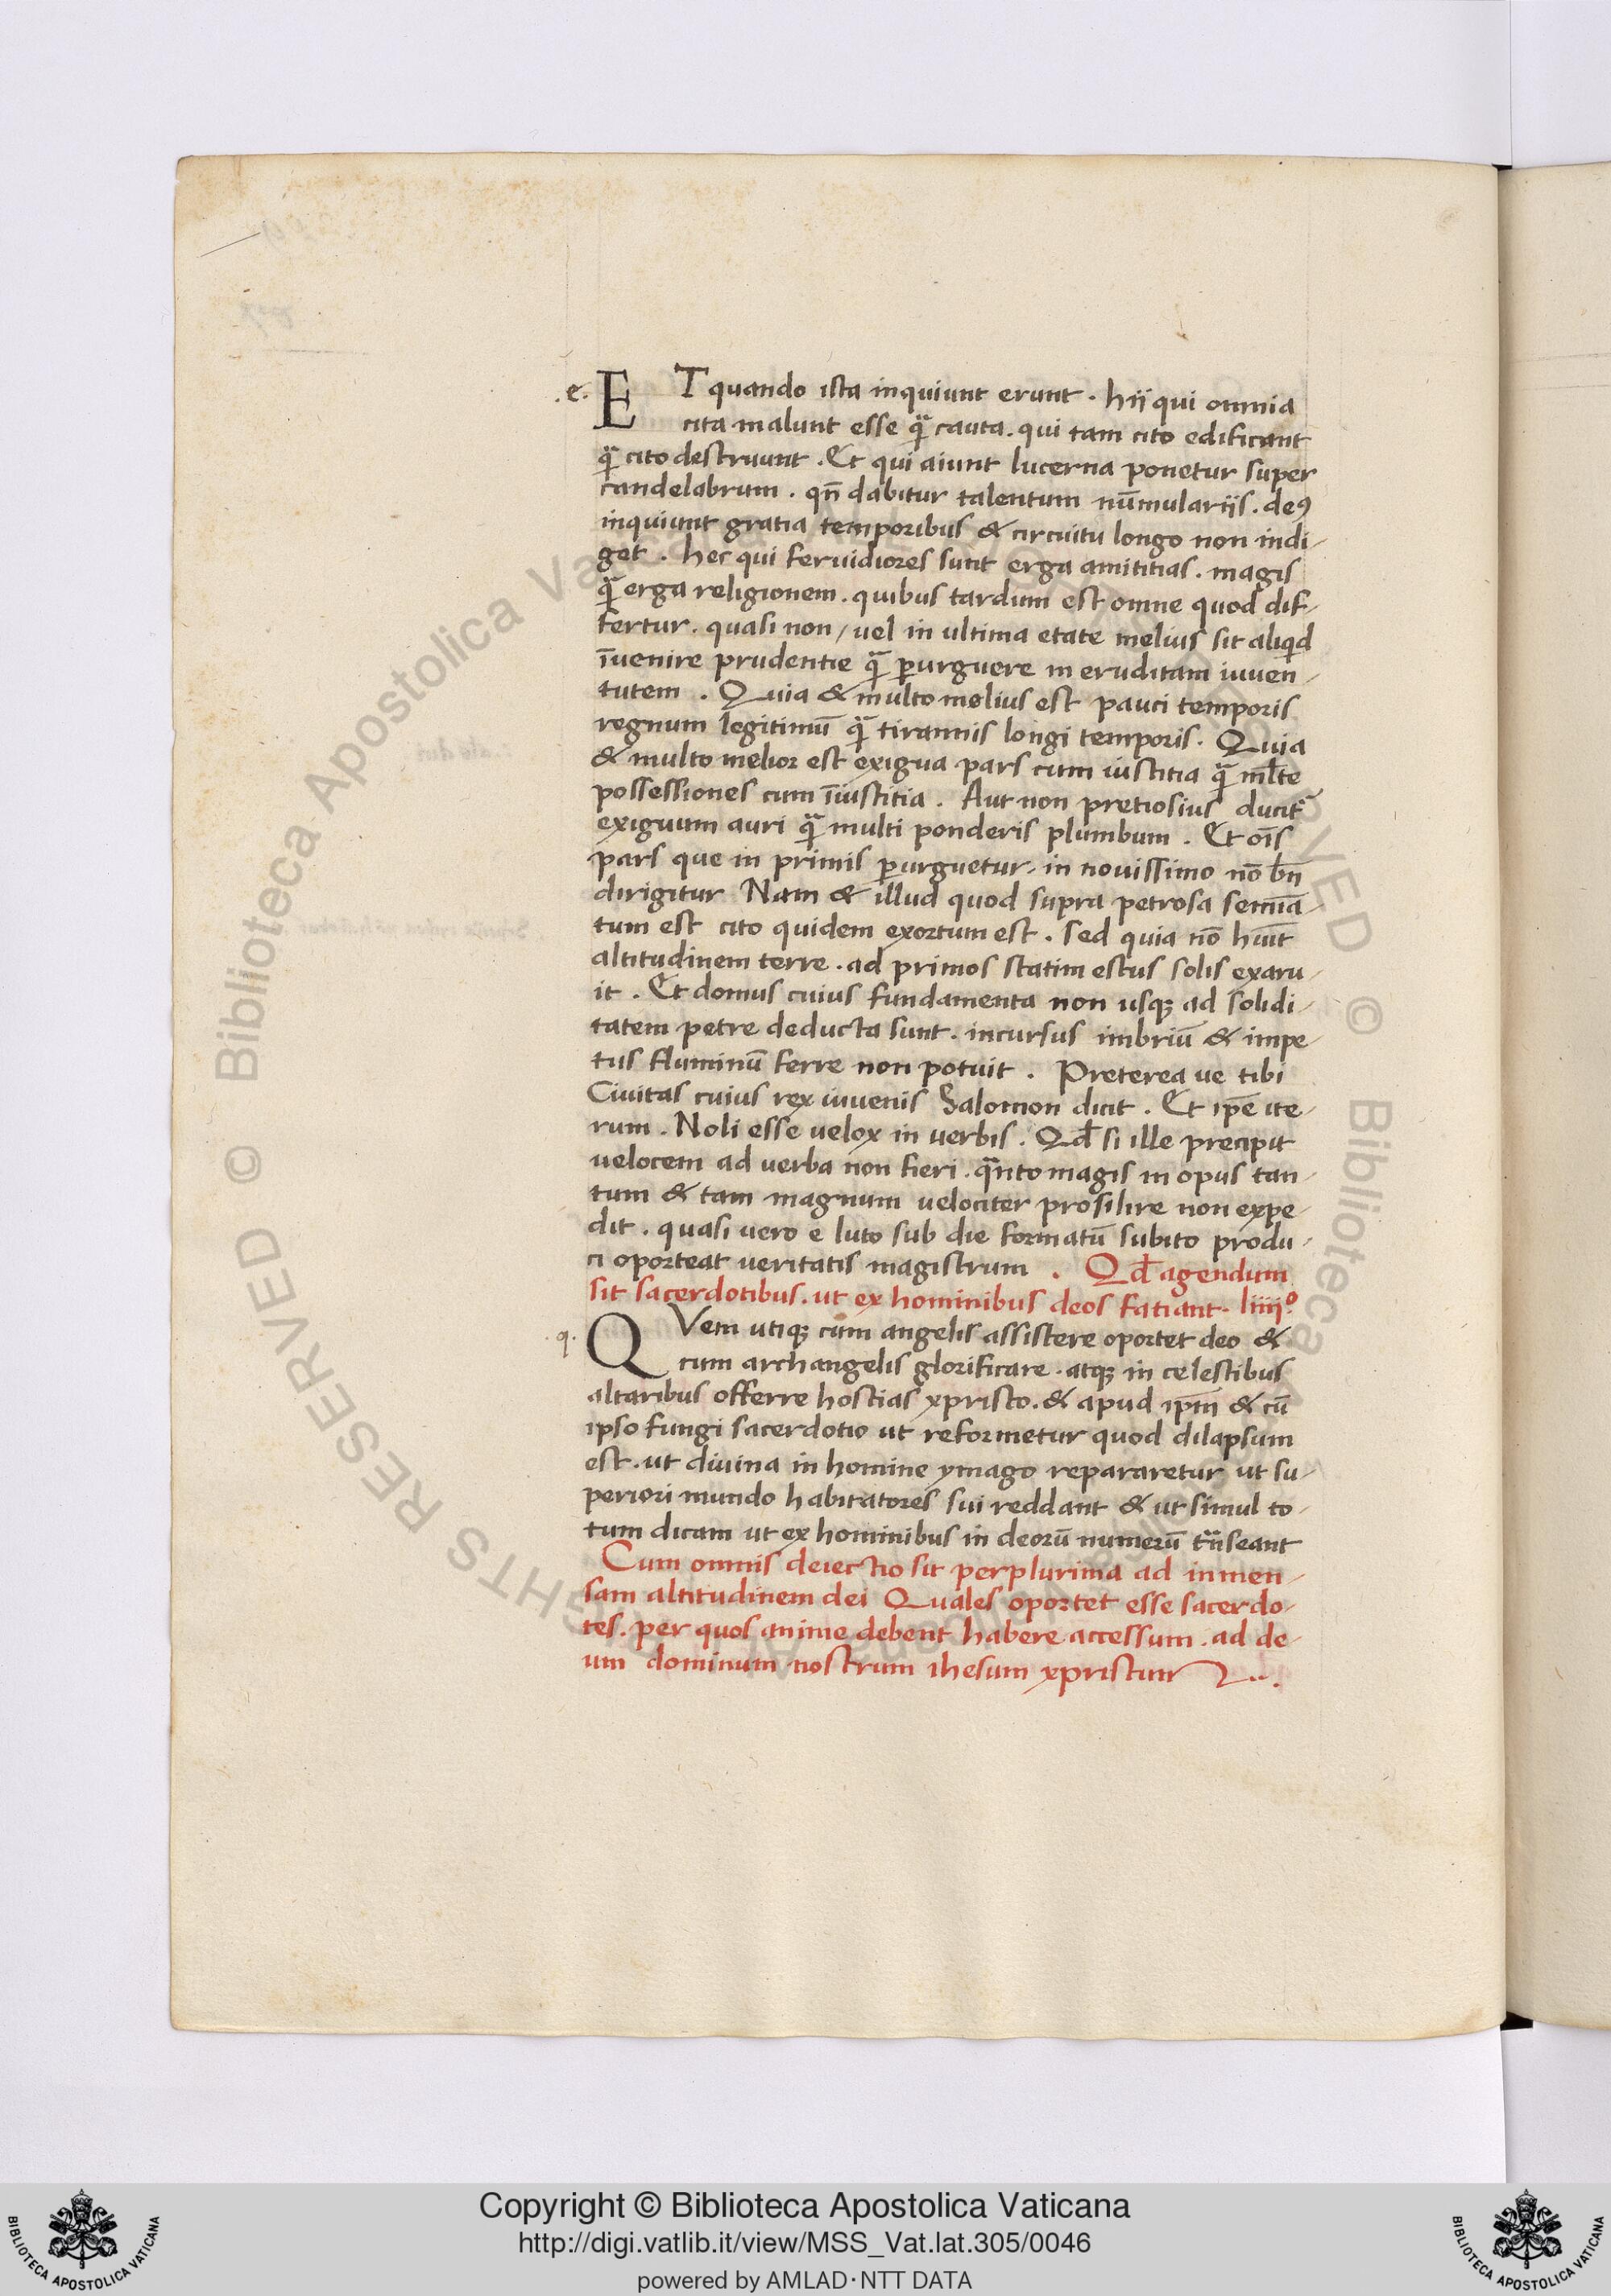 .e. ET quando ista inquiunt erunt . hij qui omnia
cita malunt esse qͣ̄ cauta . qui tam cito edificant
qͣ̄ cito destruunt . Et qui aiunt lucerna ponetur super
candelabrum . qn̄ dabitur talentum nūmulariis . deꝰ
inquiunt gratia temporibus & circuitu longo non indi-
get . hec qui feruidiores sunt erga amititias . magis
qͣ̄ erga religionem . quibus tardum est omne quod dif-
fertur . quasi non / uel in ultima etate melius sit aliqid
īuenire prudentie qͣ̄ ꝑurguere in eruditam iuuen-
tutem . Quia & multo melius est pauci temporis
regnum legitimū qͣ̄ tirannis longi temporis . Quia
& multo melior est exigua pars cum iustitia qͣ̄ ml̄te
possessiones cum īiustitia . Aut non pretiosius ducit᷑
exiguum auri qͣ̄ multi ponderis plumbum . Et oīs
pars que in primis ꝑurguetur . in nouissimo nō bn̄
dirigitur Nam & illud quod supra petrosa semīa
tum est cito quidem exortum est . sed quia nō huīt
altitudinem terre . ad primos statim estus solis exaru-
it . Et domus cuius fundamenta non usqꝫ ad solidi-
tatem petre deducta sunt . incursus imbriū & impe-
tus fluminū ferre non potuit . Preterea ue tibi
Ciuitas cuius rex iuuenis Salomon dicit . Et ip̄e ite-
rum . Noli esse uelox in uerbis . Qd̄ si ille precipit
uelocem ad uerba non fieri . qͣnto magis in opus tan-
tum & tam magnum uelociter prosilire non expe-
dit . quasi uero e luto sub die formatū subito produ-
ci oporteat ueritatis magistrum . Qd̄ agendum
sit sacerdotibus . ut ex hominibus deos fatiant . liiijº
.q. QVem utiqꝫ cum angelis assistere oportet deo &
cum archangelis glorificare . atqꝫ in celestibus
altaribus offerre hostias xpristo . & apud ip̄m & cū
ipso fungi sacerdotio ut reformetur quod dilapsum
est . ut diuina in homine ymago repararetur ut su-
periori mundo habitatores sui reddant & ut simul to-
tum dicam ut ex hominibus in deorū numerū trͣ̄seant
Cum omnis deiectio sit perplurima ad inmen-
sam altitudinem dei Quales oportet esse sacerdo-
tes . per quos anime debent habere accessum . ad de-
um dominum nostrum ihesum xpristum
Copyright © Biblioteca Apostolica Vaticana
http://digi.vatlib.it/view/MSS_Vat.lat.305/0046
powered by AMLAD·NTT DATA